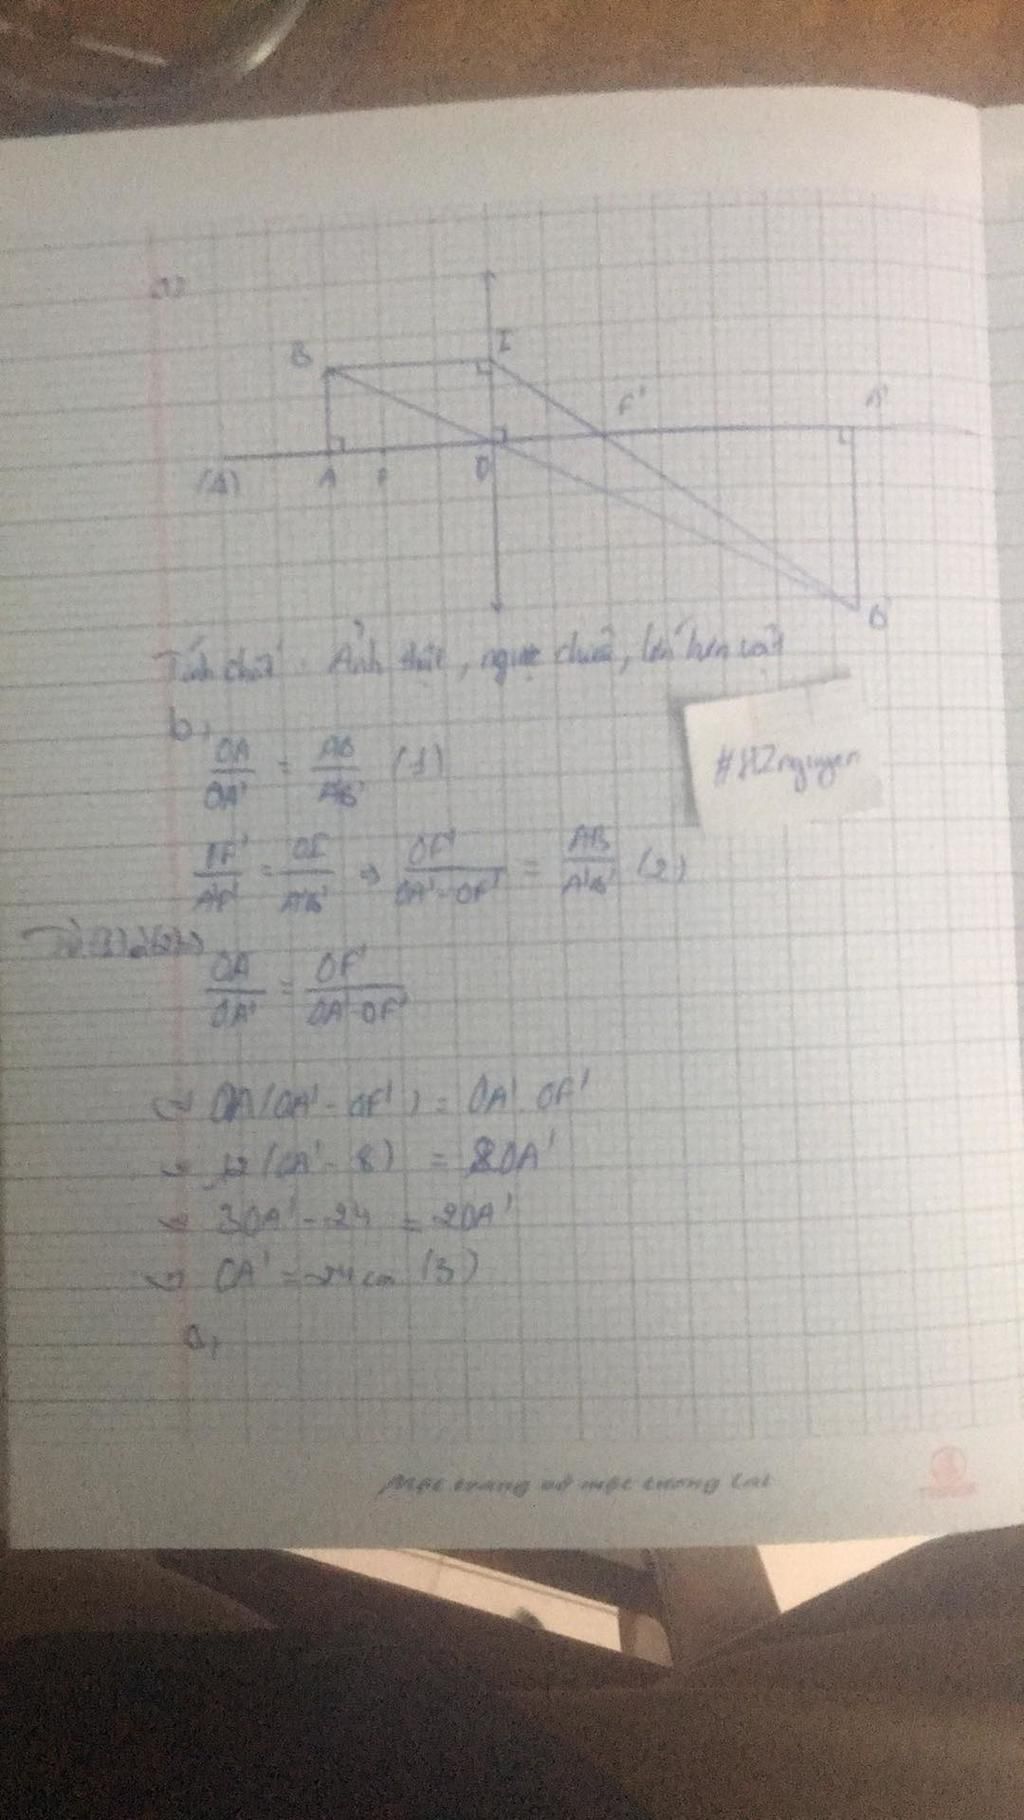 a)
B I
F' A'
(Δ) A F O
B'
Tính chất: Ảnh thật, ngược chiều, lớn hơn vật
b,
OA/OA' = AB/A'B' (1)
#HZnguyen
OF'/A'F' = OI/A'B' => OF'/OA'-OF' = AB/A'B' (2)
Từ (1) (2) =>
OA/OA' = OF'/OA'-OF'
=> OA(OA' - OF') = OA'.OF'
12(OA' - 8) = 8OA'
3OA' - 24 = 2OA'
OA' = 24cm (3)
Một trang vở một tương lai